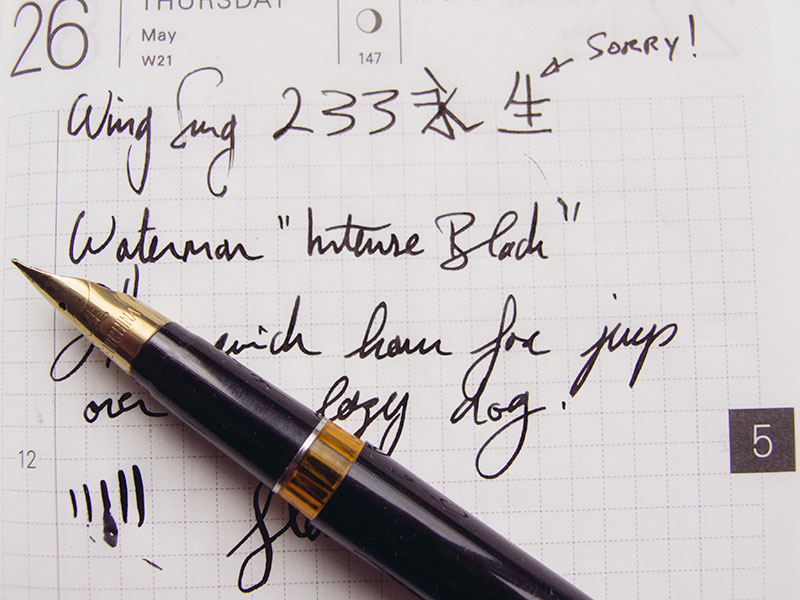 26 THURSDAY
May
W21
147
SORRY!
Wing Sung 233 永生
Waterman "Intense Black"
brown fox jumps
over lazy dog.
12
5